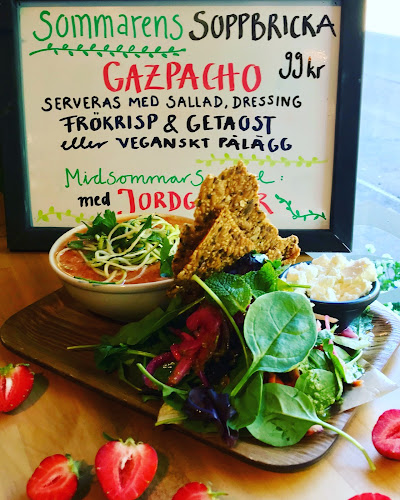 Sommarens SOPPBRICKA
GAZPACHO 99kr
SERVERAS MED SALLAD, DRESSING
FRÖKRISP & GETAOST
eller VEGANSKT PÅLÄGG
med